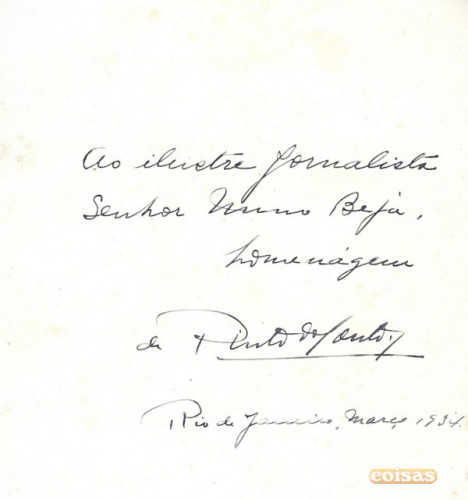 Ao ilustre Jornalista
Senhor Nuno Beja,
homenágem
de Pinto do Couto,
Rio de Janeiro, Março 1934.
coisas